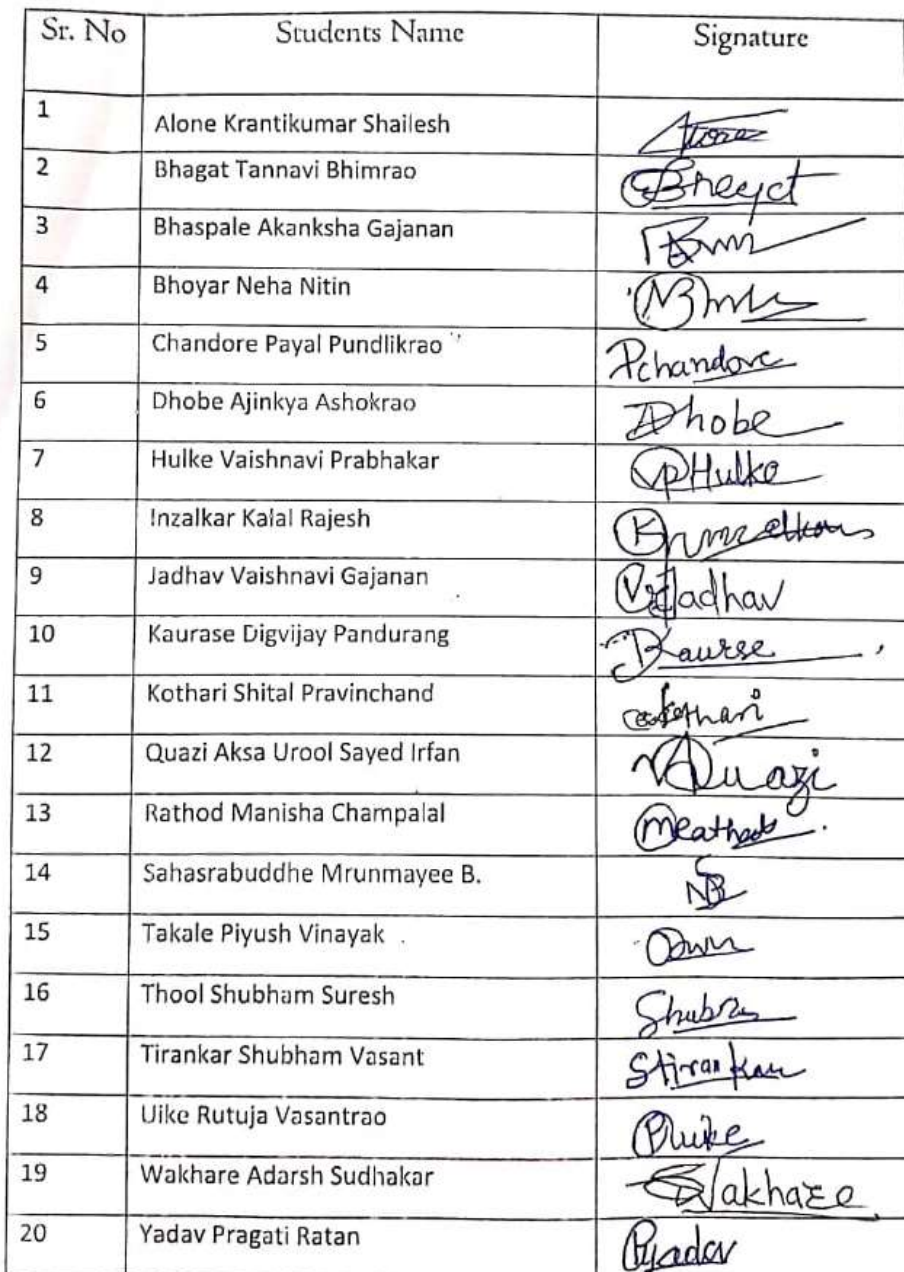 Sr. No Students Name Signature
1 Alone Krantikumar Shailesh
2 Bhagat Tannavi Bhimrao
3 Bhaspale Akanksha Gajanan
4 Bhoyar Neha Nitin
5 Chandore Payal Pundlikrao Pchandore
6 Dhobe Ajinkya Ashokrao ADhobe
7 Hulke Vaishnavi Prabhakar VPHulke
8 Inzalkar Kalal Rajesh
9 Jadhav Vaishnavi Gajanan VGJadhav
10 Kaurase Digvijay Pandurang
11 Kothari Shital Pravinchand
12 Quazi Aksa Urool Sayed Irfan Quazi
13 Rathod Manisha Champalal
14 Sahasrabuddhe Mrunmayee B.
15 Takale Piyush Vinayak
16 Thool Shubham Suresh
17 Tirankar Shubham Vasant Stirankar
18 Uike Rutuja Vasantrao Ruike
19 Wakhare Adarsh Sudhakar Wakhare
20 Yadav Pragati Ratan Pyadav